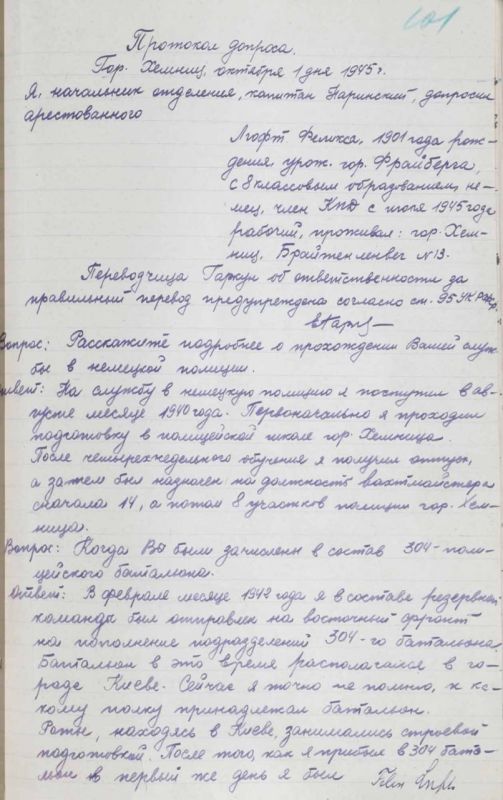 101
Протокол допроса.
Гор. Хемниц, октября 1 дня 1945 г.
Я, начальник отделения, капитан Таринский, допросил
арестованного
Лгофт Феликса, 1901 года рож-
дения урож. гор. Фрайберга,
с 8 классовым образованием, не-
мец, член КПД с июля 1945 года
рабочий, проживал: гор. Хем-
ниц, Брайтенленвег № 13.
Переводчица Гаркун об ответственности за
правильный перевод предупреждена согласно ст. 95 УК РСФСР
Вопрос: Расскажите подробнее о прохождении Вашей служ-
бы в немецкой полиции.
Ответ: На службу в немецкую полицию я поступил в ав-
густе месяце 1940 года. Первоначально я проходил
подготовку в полицейской школе гор. Хемница.
После четырехнедельного обучения я получил отпуск,
а затем был назначен на должность вахтмайстера
сначала 14, а потом 8 участков полиции гор. Хем-
ница.
Вопрос: Когда Вы были зачислены в состав 304-поли-
цейского батальона.
Ответ: В феврале месяце 1942 года я в составе резервной
команды был отправлен на восточный фронт
на пополнение подразделений 304-го батальона
Батальон в это время располагался в го-
роде Киеве. Сейчас я точно не помню, к ка-
кому полку принадлежал батальон.
Роты, находясь в Киеве, занимались строевой
подготовкой. После того, как я прибыл в 304 бата-
льон в первый же день я был